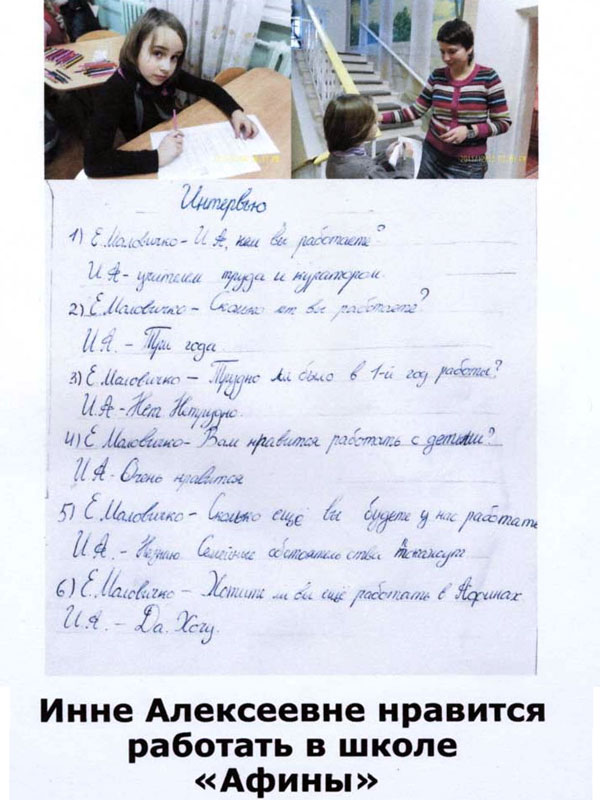 Интервью
1) Е. Маловичко - И.А, кем вы работаете?
И.А - учителем труда и куратором.
2) Е. Маловичко - Сколько лет вы работаете?
И.А. - Три года
3) Е. Маловичко - Трудно ли было в 1-й год работы?
И.А - Нет. Нетрудно.
4) Е. Маловичко - Вам нравится работать с детьми?
И.А - Очень нравится
5) Е. Маловичко - Сколько ещё вы будете у нас работать
И.А. - Незнаю Семейные обстоятельства покажут
6) Е. Маловичко - Хотите ли вы ещё работать в Афинах
И.А. - Да. Хочу.
Инне Алексеевне нравится
работать в школе
«Афины»